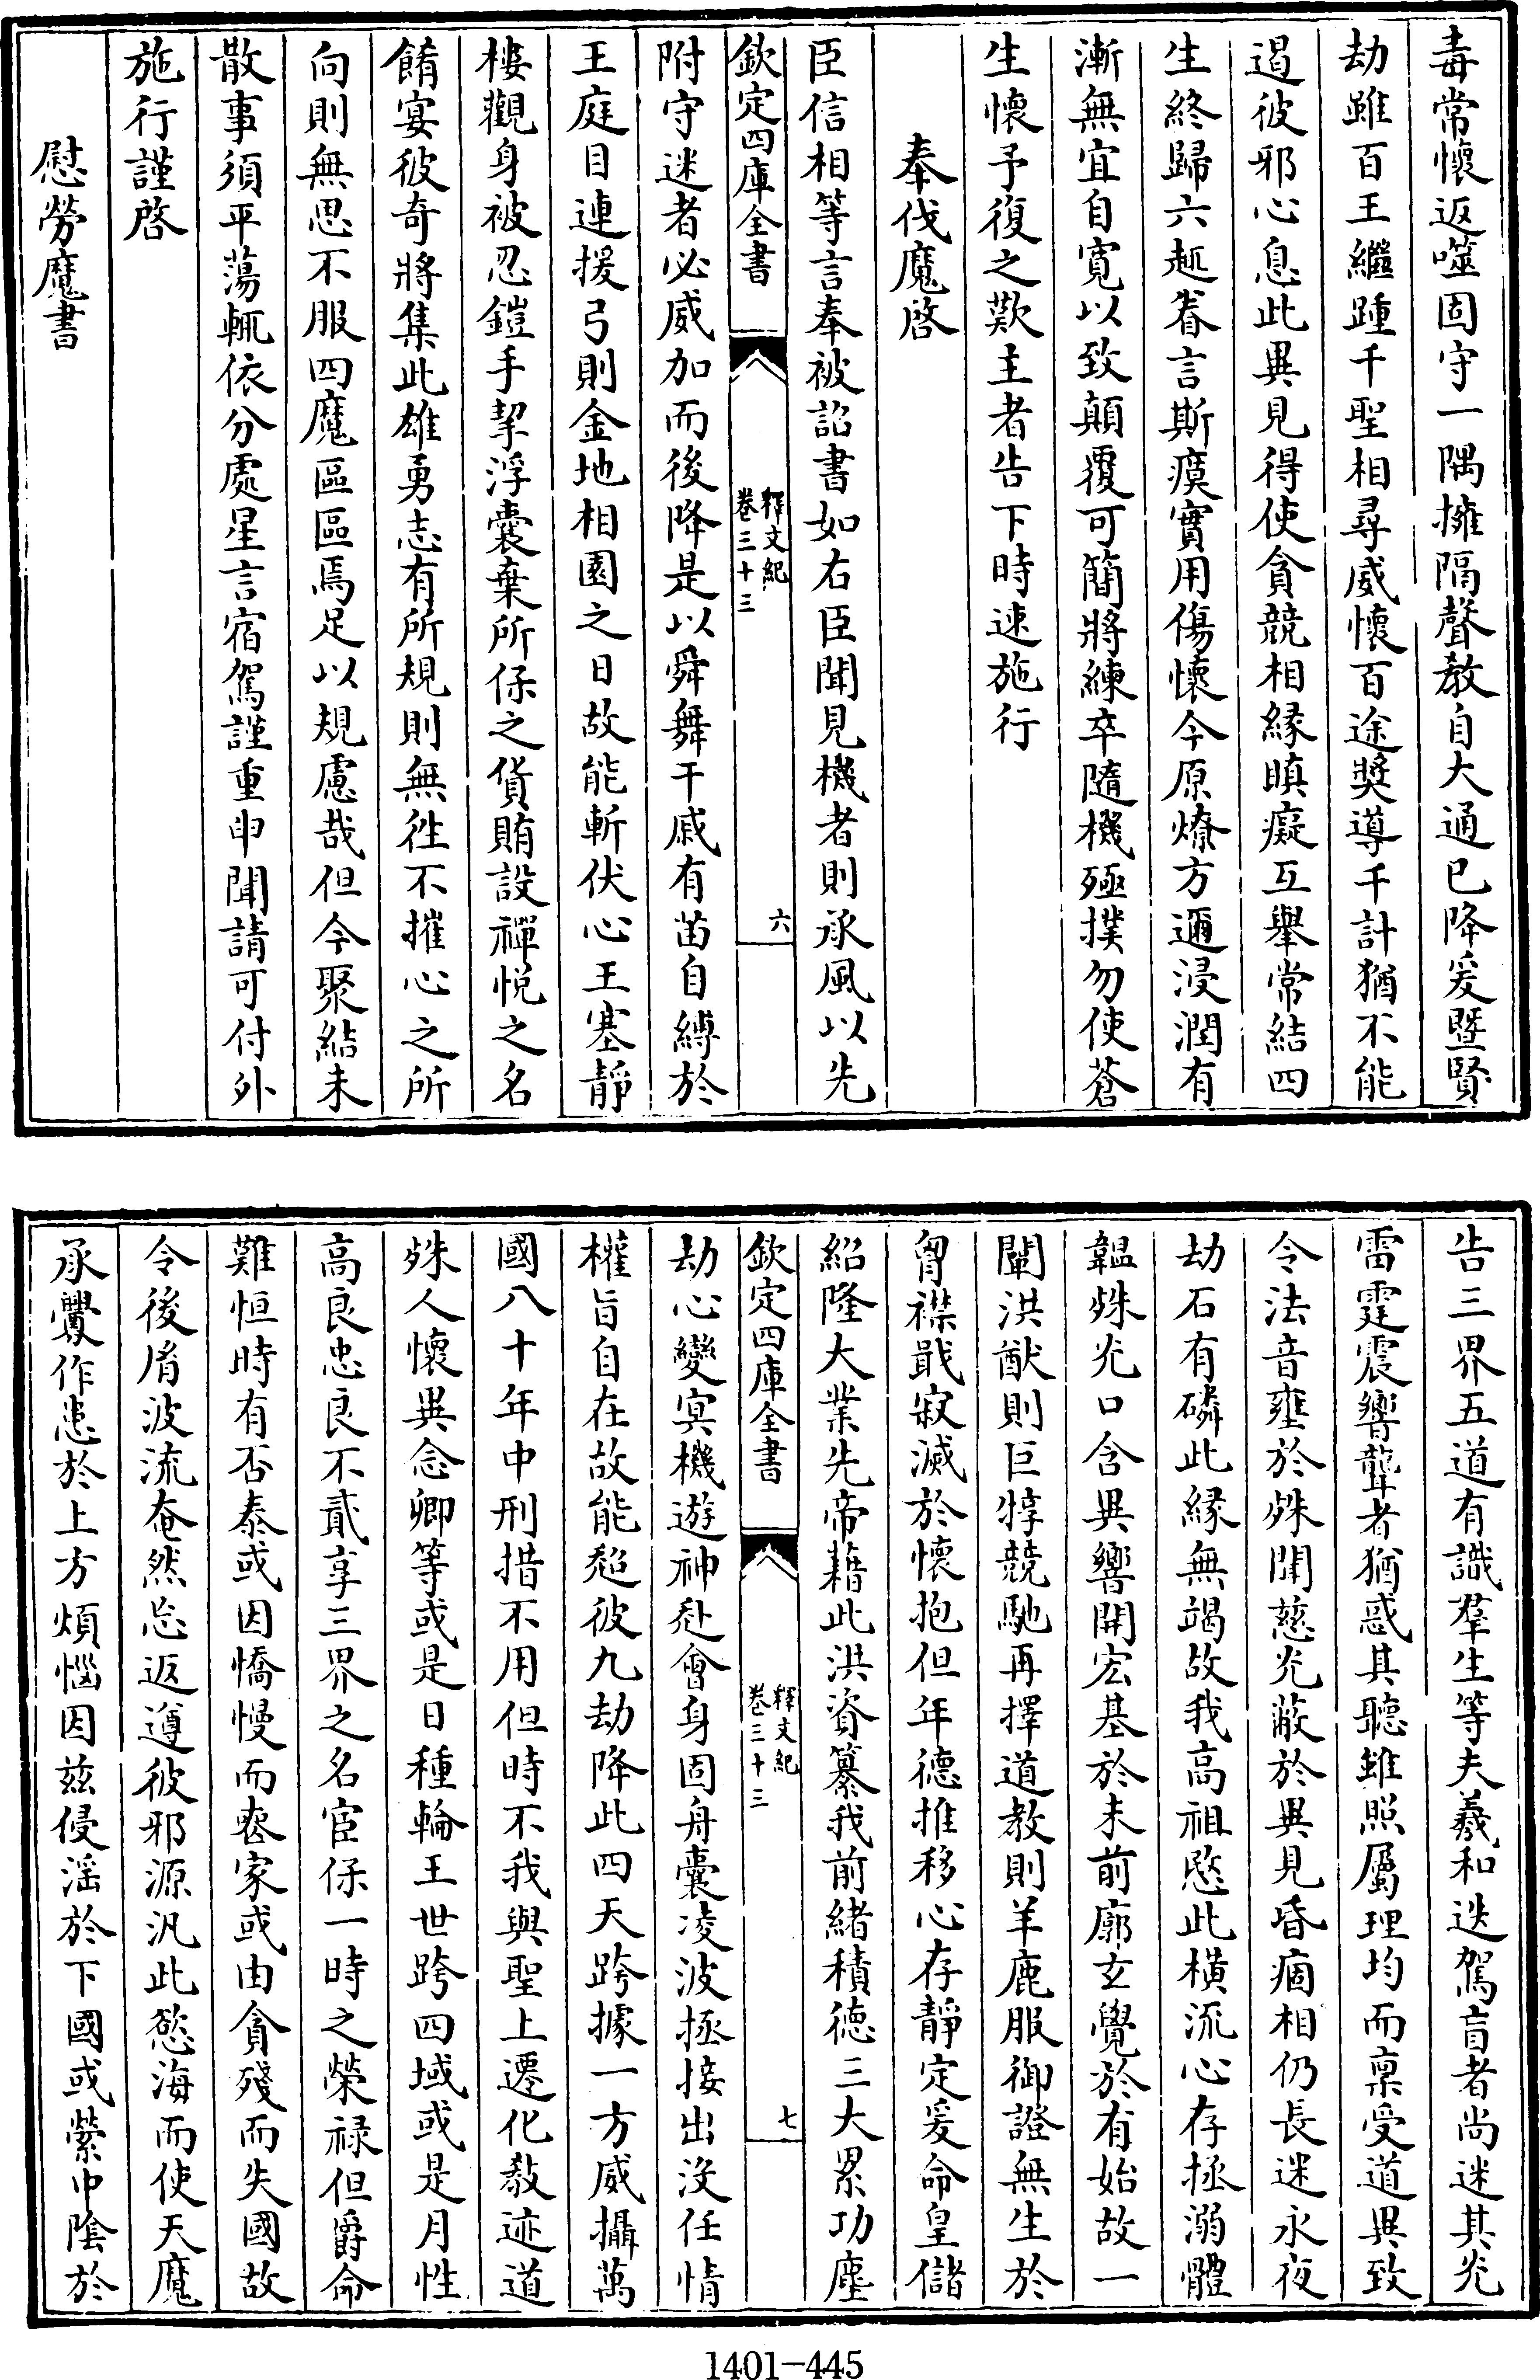 毒常懷返噬固守一隅擁隔聲教自大通已降爰暨賢
劫雖百王繼踵千聖相尋威懷百途奬導千計猶不能
遏彼邪心息此異見得使貪競相緣瞋癡互舉常結四
生終歸六趣眷言斯瘼實用傷懷今原燎方邇浸潤有
漸無宜自寛以致顛覆可簡將練卒隨機殛撲勿使蒼
生懷予復之歎主者告下時速施行
奉伐魔啓
臣信相等言奉被詔書如右臣聞見機者則承風以先
欽定四庫全書
釋文紀
卷三十三
六
附守迷者必威加而後降是以舜舞干戚有苗自縛於
王庭目連援弓則金地相園之日故能斬伏心王塞靜
樓觀身被忍鎧手挈浮囊棄所保之貨賄設禪悅之名
餚宴彼奇將集此雄勇志有所規則無往不摧心之所
向則無思不服四魔區區焉足以規慮哉但今聚結未
散事須平蕩輒依分處星言宿駕謹重申聞請可付外
施行謹啓
慰勞魔書
告三界五道有識羣生等夫羲和迭駕盲者尚迷其光
雷霆震響聾者猶惑其聽雖照屬理均而稟受道異致
令法音壅於殊聞慈光蔽於異見昏痼相仍長迷永夜
劫石有磷此緣無竭故我高祖愍此橫流心存拯溺體
韞殊光口含異響開宏基於未前廓玄覺於有始故一
闡洪猷則巨犉競馳再擇道教則羊鹿服御證無生於
胷襟戢寂滅於懷抱但年德推移心存靜定爰命皇儲
紹隆大業先帝藉此洪資纂我前緒積德三大累功塵
欽定四庫全書
釋文紀
卷三十三
七
劫心變冥機遊神赴會身固舟囊凌波拯接出沒任情
權旨自在故能超彼九劫降此四天跨據一方威攝萬
國八十年中刑措不用但時不我與聖上遷化教迹道
殊人懷異念卿等或是日種輪王世跨四域或是月性
高良忠良不貳享三界之名宦保一時之榮禄但爵命
難恒時有否泰或因憍慢而喪家或由貪殘而失國故
令後肯波流奄然忘返遵彼邪源汎此慾海而使天魔
承釁作患於上方煩惱因茲侵淫於下國或縈中陰於
1401-445